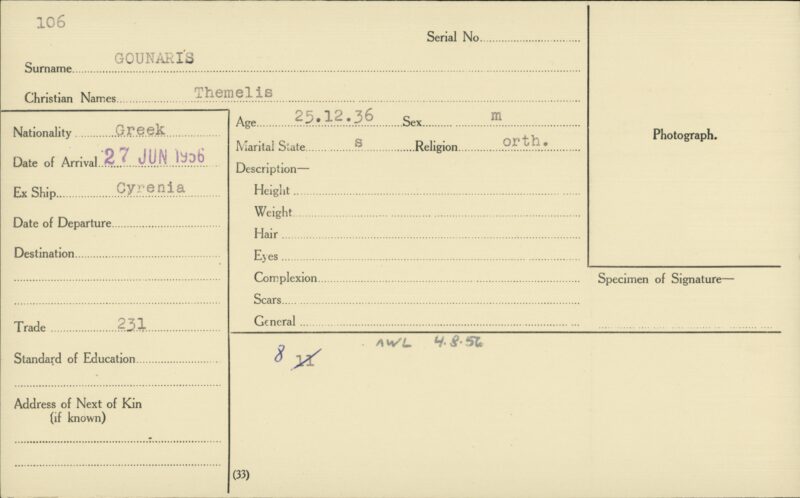 106
Serial No.
Surname GOUNARIS
Christian Names Themelis
Nationality Greek
Date of Arrival 27 JUN 1956
Ex Ship Cyrenia
Date of Departure
Destination
Trade 231
Standard of Education
Address of Next of Kin
(if known)
Age 25.12.36 Sex m
Marital State s Religion orth.
Description—
Height
Weight
Hair
Eyes
Complexion
Scars
General
Photograph.
Specimen of Signature—
AWL 4.8.56
8 11
(33)